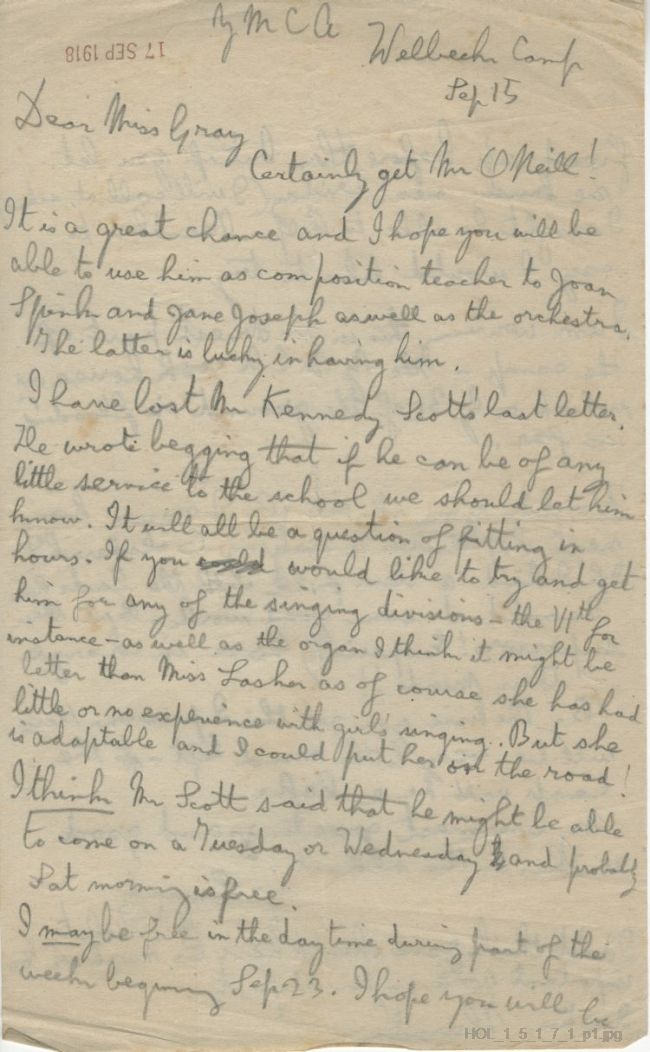 Y M C A
17 SEP 1918
Welbeck Camp
Sep 15
Dear Miss Gray
Certainly get Mr O'Neill!
It is a great chance and I hope you will be
able to use him as composition teacher to Joan
Spink and Jane Joseph as well as the orchestra.
The latter is lucky in having him.
I have lost Mr Kennedy Scott's last letter.
He wrote begging that if he can be of any
little service to the school we should let him
know. It will all be a question of fitting in
hours. If you could would like to try and get
him for any of the singing divisions – the VIth for
instance – as well as the organ I think it might be
better than Miss Lasker as of course she has had
little or no experience with girls' singing. But she
is adaptable and I could put her on the road!
I think Mr Scott said that he might be able
to come on a Tuesday or Wednesday and probably
Sat morning is free.
I may be free in the daytime during part of the
week beginning Sep 23. I hope you will be
HOL_1_5_1_7_1_p1.jpg